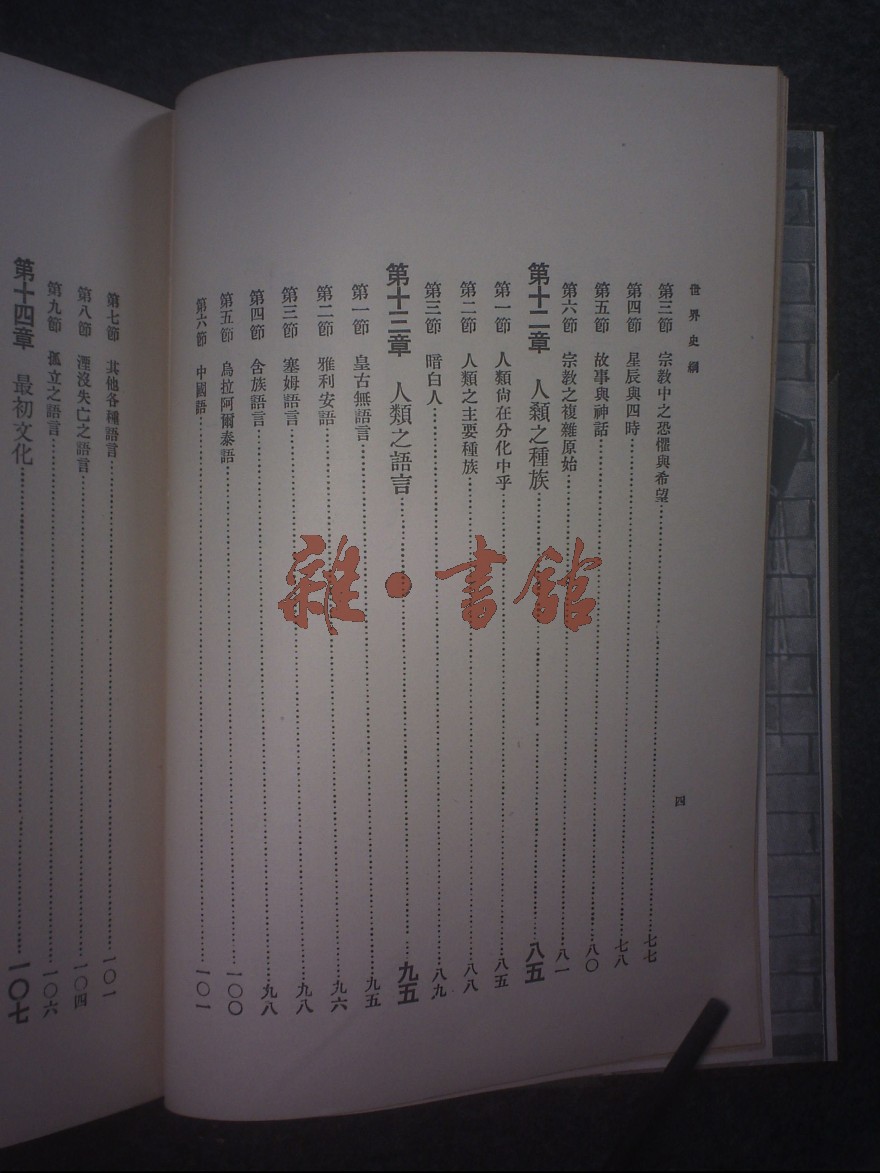 世界史綱
四
第三節 宗教中之恐懼與希望 七七
第四節 星辰與四時 七八
第五節 故事與神話 八〇
第六節 宗教之複雜原始 八一
第十二章 人類之種族 八五
第一節 人類尙在分化中乎 八五
第二節 人類之主要種族 八八
第三節 暗白人 八九
第十三章 人類之語言 九五
第一節 皇古無語言 九五
第二節 雅利安語 九六
第三節 塞姆語言 九八
第四節 含族語言 九八
第五節 烏拉阿爾泰語 一〇〇
第六節 中國語 一〇一
第七節 其他各種語言 一〇一
第八節 湮沒失亡之語言 一〇四
第九節 孤立之語言 一〇六
第十四章 最初文化 一〇七
雜·書館